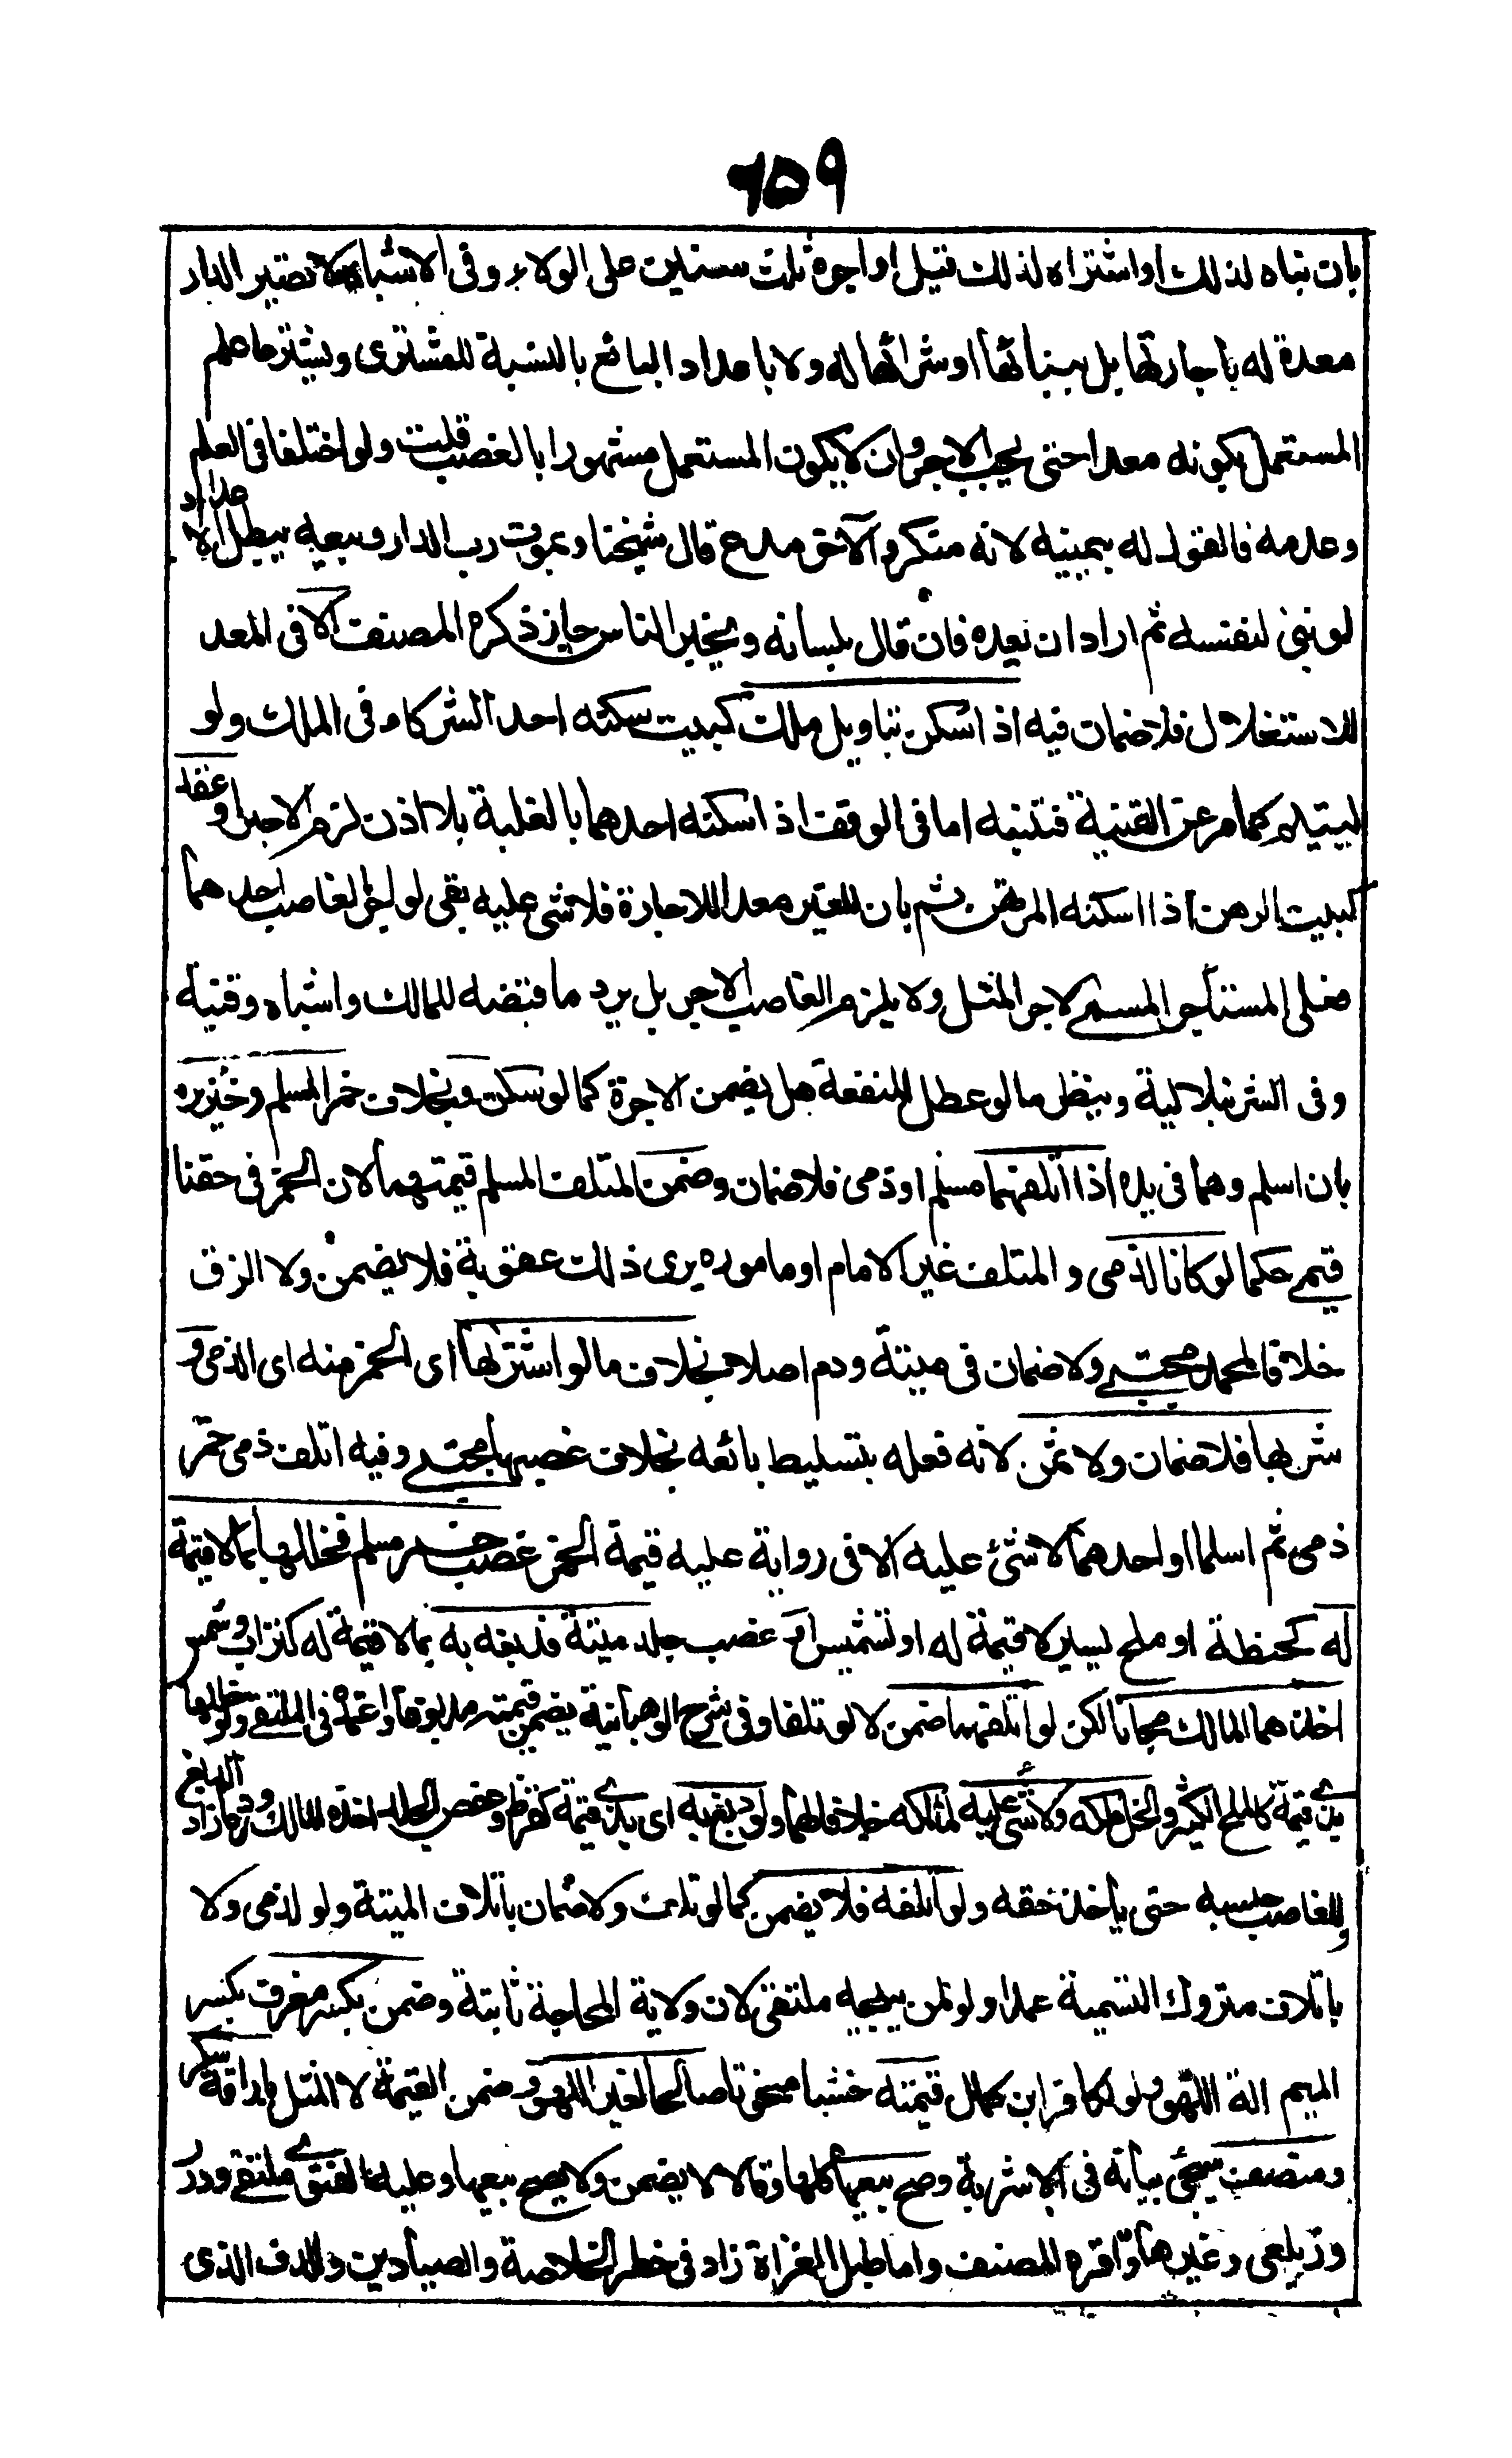 ٦٥٩
بان بناه لذلك او اشتراه لذلك قيل او اجره ثلث سنين على الولاء وفى الاشباه لا تصير الدار
معدة له باجارتها بل ببنائها او شرائها له ولا باعداد البائع بالنسبة للمشترى ويشترط علم
المستعمل بكونه معدا حتى يجب الاجر وان لا يكون المستعمل مشهورا بالغصب قلت ولو اختلفا فى العلم
وعدمه فالقول له بيمينه لانه منكر والآخر مدع قال شيخنا وبموت رب الدار وبيعه يبطل الاعداد
لو بنى لنفسه ثم اراد ان يعده فان قال بلسانه ويخبر الناس جاز ذكره المصنف الا فى المعد
للاستغلال فلا ضمان فيه اذا سكن بتاويل ملك كبيت سكنه احد الشركاء فى الملك ولو
ليتيم كما مر عن القنية فتنبه اما فى الوقف اذا سكنه احدهما بالغلبة بلا اذن لزم الاجر او عقد
كبيت الرهن اذا اسكنه المرتهن ثم بان للغير معدا للاجارة فلا شئ عليه بقى لو اجر الغاصب احدهما
فعلى المستأجر المسمى لا اجر المثل ولا يلزم الغاصب الاجر بل يرد ما قبضه للمالك واشباه وقنية
وفى الشرنبلالية وينظر ما لو عطل المنفعة هل يضمن الاجرة كما لو سكن وبخلاف خمر المسلم وخنزيره
بان اسلم وهما فى يده اذا اتلفهما مسلم او ذمى فلا ضمان وضمن المتلف المسلم قيمتهما لان الخمر فى حقنا
قيمى حكما لو كانا لذمى والمتلف غير الامام او ماموره يرى ذلك عقوبة فلا يضمن ولا الزق
خلافا لمحمد مجتبى ولا ضمان فى ميتة ودم اصلا بخلاف ما لو اشتراها اى الخمر منه اى الذمى و
شربها فلا ضمان ولا ثمن لانه فعله بتسليط بائعه بخلاف غصبها مجتبى وفيه اتلف ذمى خمر
ذمى ثم اسلما او احدهما لا شئ عليه الا فى رواية عليه قيمة الخمر غصب خمر مسلم فخللها بما لا قيمة
له كحنطة او ملح يسير لا قيمة له او تشميس او غصب جلد ميتة فدبغه به بما لا قيمة له كتراب وشمس
اخذهما المالك مجانا لكن لو اتلفهما ضمن لا لو تلفا وفى شرح الوهبانية يضمن قيمته مدبوغا واعتمده فى الملتقى ولو خللها
بذى قيمة كالملح الكثير والخل ملكه ولا شئ عليه لمالكه خلافا لهما ولو دبغ به اى بذى قيمة كقرظ وعفص الجلد اخذه المالك ورد ما زاد الدبغ
وللغاصب حبسه حتى يأخذ حقه ولو اتلفه فلا يضمن كما لو تلف ولا ضمان باتلاف الميتة ولو لذمى ولا
باتلاف متروك التسمية عمدا ولو لمن يبيحه ملتقى لان ولاية المحاجة ثابتة وضمن بكسر معزف بكسر
الميم الة اللهو ولو لكافر ابن كمال قيمته خشبا منحوتا صالحا لغير اللهو وضمن القيمة لا المثل باراقة سكر
ومنصف سيجئ بيانه فى الاشربة وصح بيعها كلها وقالا لا يضمن ولا يصح بيعها وعليه الفتوى ملتقى ودرر
وزيلعى وغيرها واقره المصنف واما طبل الغزاة زاد فى حظر الخلاصة والصيادين والدف الذى